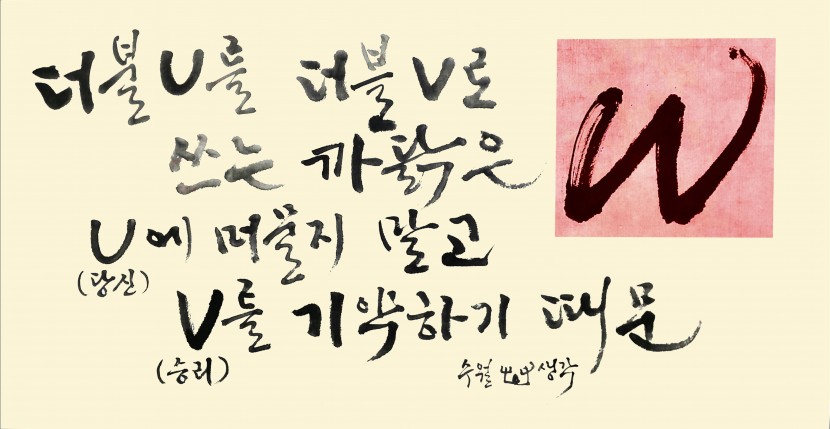 더블 U를 더블 V로
쓰는 까닭은
U에 머물지 말고
(당신)
V를 기약하기 때문
(승리)
수월 생각
W